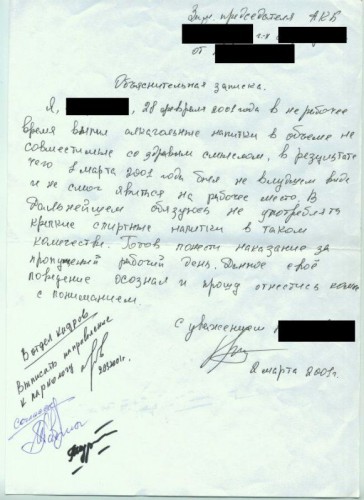 Зам. председателя АКБ
г-н
от
Объяснительная записка.
Я, , 28 февраля 2001 года в не рабочее
время выпил алкагольные напитки в объеме не
совместимые со здравым смыслом, в результате
чего 1 марта 2001 года был не в лудшем виде
и не смог явиться на рабочее место. В
дальнейшем обязуюсь не употреблять
крепкие спиртные напитки в таком
количестве. Готов понести наказание за
пропущенный рабочий день. Данное своё
поведение осознал и прошу отнестись ко мне
с пониманием.
С уважением
2 марта 2001г.
В отдел кадров
Выписать направление
к наркологу